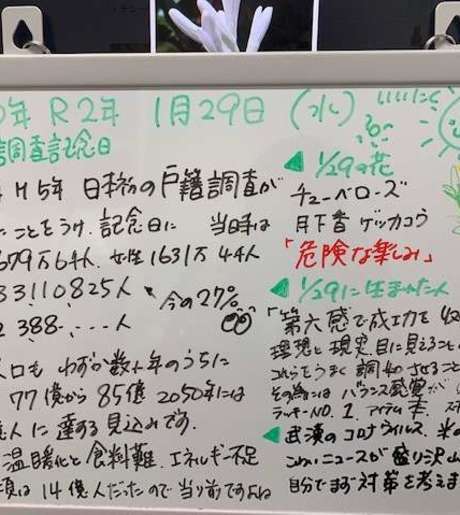 0年 R2年 1月29日 (水)
調査記念日
M5年 日本初の戸籍調査が
たことをうけ、記念日に 当時は
679万64人、女性1631万44人
33110825人 今の27%
388-,---人
人口も わずか数十年のうちに
77億から85億 2050年には
億人に達する見込みです。
温暖化と食料難、エネルギー不足
頃は14億人だったので当り前ですよね
◀ 1/29の花
チューベローズ
月下香 ゲッカコウ
「危険な楽しみ」
◀ 1/29に生まれた人
「第六感で成功を
理想と現実 目に見えること
これらをうまく調和させること
その為には バランス感覚が
ラッキーNO. 1. アイテム 本.
◀ 武漢のコロナウイルス、米の
こわいニュースが盛り沢山
自分でまず対策を考えま